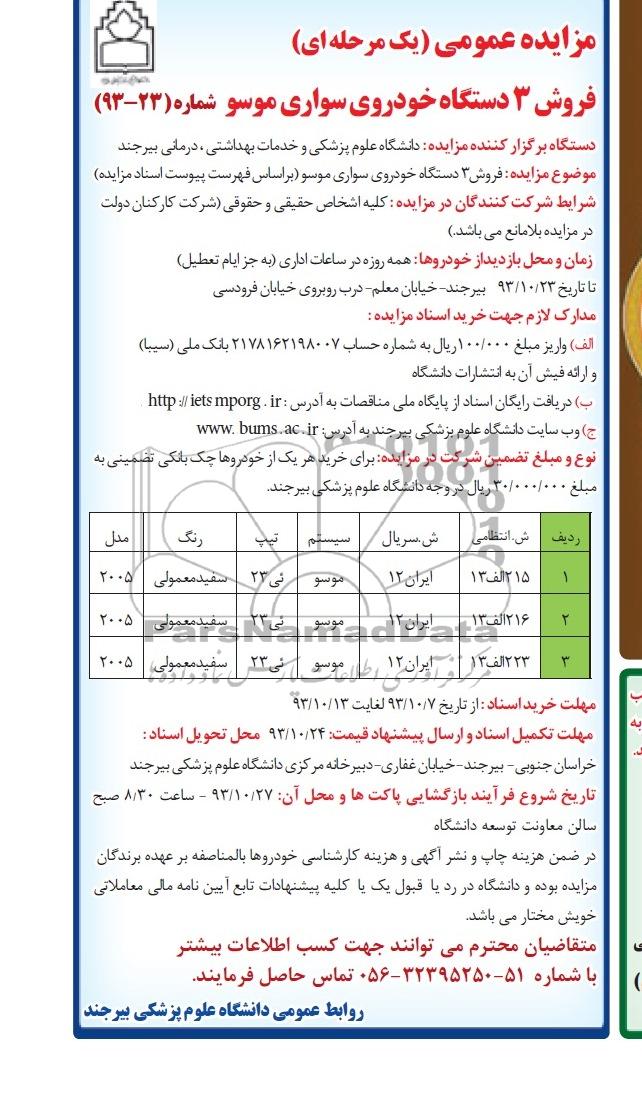 مزایده عمومی (یک مرحله ای)
فروش ۳ دستگاه خودروی سواری موسو شماره (۲۳-۹۳)
دستگاه برگزار کننده مزایده: دانشگاه علوم پزشکی و خدمات بهداشتی ، درمانی بیرجند
موضوع مزایده : فروش۳ دستگاه خودروی سواری موسو (براساس فهرست پیوست اسناد مزایده)
شرایط شرکت کنندگان در مزایده : کلیه اشخاص حقیقی و حقوقی (شرکت کارکنان دولت
در مزایده بلامانع می باشد.)
زمان و محل بازدیداز خودروها: همه روزه در ساعات اداری (به جز ایام تعطیل)
تا تاریخ ۹۳/۱۰/۲۳ بیرجند- خیابان معلم- درب روبروی خیابان فرودسی
مدارک لازم جهت خرید اسناد مزایده :
الف) واریز مبلغ ۱۰۰/۰۰۰ریال به شماره حساب ۲۱۷۸۱۶۲۱۹۸۰۰۷ بانک ملی (سیبا)
و ارائه فیش آن به انتشارات دانشگاه
ب) دریافت رایگان اسناد از پایگاه ملی مناقصات به آدرس : http://iets mporg . ir
ج) وب سایت دانشگاه علوم پزشکی بیرجند به آدرس: www. bums .ac . ir
نوع و مبلغ تضمین شرکت در مزایده: برای خرید هر یک از خودروها چک بانکی تضمینی به
مبلغ ۳۰/۰۰۰/۰۰۰ ریال در وجه دانشگاه علوم پزشکی بیرجند.
ردیف ش.انتظامی ش.سریال سیستم تیپ رنگ مدل
۱ ۲۱۵الف۱۳ ایران۱۲ موسو ئی۲۳ سفیدمعمولی ۲۰۰۵
۲ ۲۱۶الف۱۳ ایران۱۲ موسو ئی۲۳ سفیدمعمولی ۲۰۰۵
ParsNamadData
۳ ۲۲۳الف۱۳ ایران۱۲ موسو ئی۲۳ سفیدمعمولی ۲۰۰۵
مرکز فرآوری اطلاعات پارس نماد داده ها
مهلت خریداسناد : از تاریخ ۹۳/۱۰/۷ لغایت ۹۳/۱۰/۱۳
مهلت تکمیل اسناد و ارسال پیشنهاد قیمت: ۹۳/۱۰/۲۴ محل تحویل اسناد :
خراسان جنوبی- بیرجند-خیابان غفاری-دبیرخانه مرکزی دانشگاه علوم پزشکی بیرجند
تاریخ شروع فرآیند بازگشایی پاکت ها و محل آن: ۹۳/۱۰/۲۷ - ساعت ۸/۳۰ صبح
سالن معاونت توسعه دانشگاه
در ضمن هزینه چاپ و نشر آگهی و هزینه کارشناسی خودروها بالمناصفه بر عهده برندگان
مزایده بوده و دانشگاه در رد یا قبول یک یا کلیه پیشنهادات تابع آیین نامه مالی معاملاتی
خویش مختار می باشد.
متقاضیان محترم می توانند جهت کسب اطلاعات بیشتر
با شماره ۵۱-۳۲۳۹۵۲۵۰-۰۵۶ تماس حاصل فرمایند.
روابط عمومی دانشگاه علوم پزشکی بیرجند